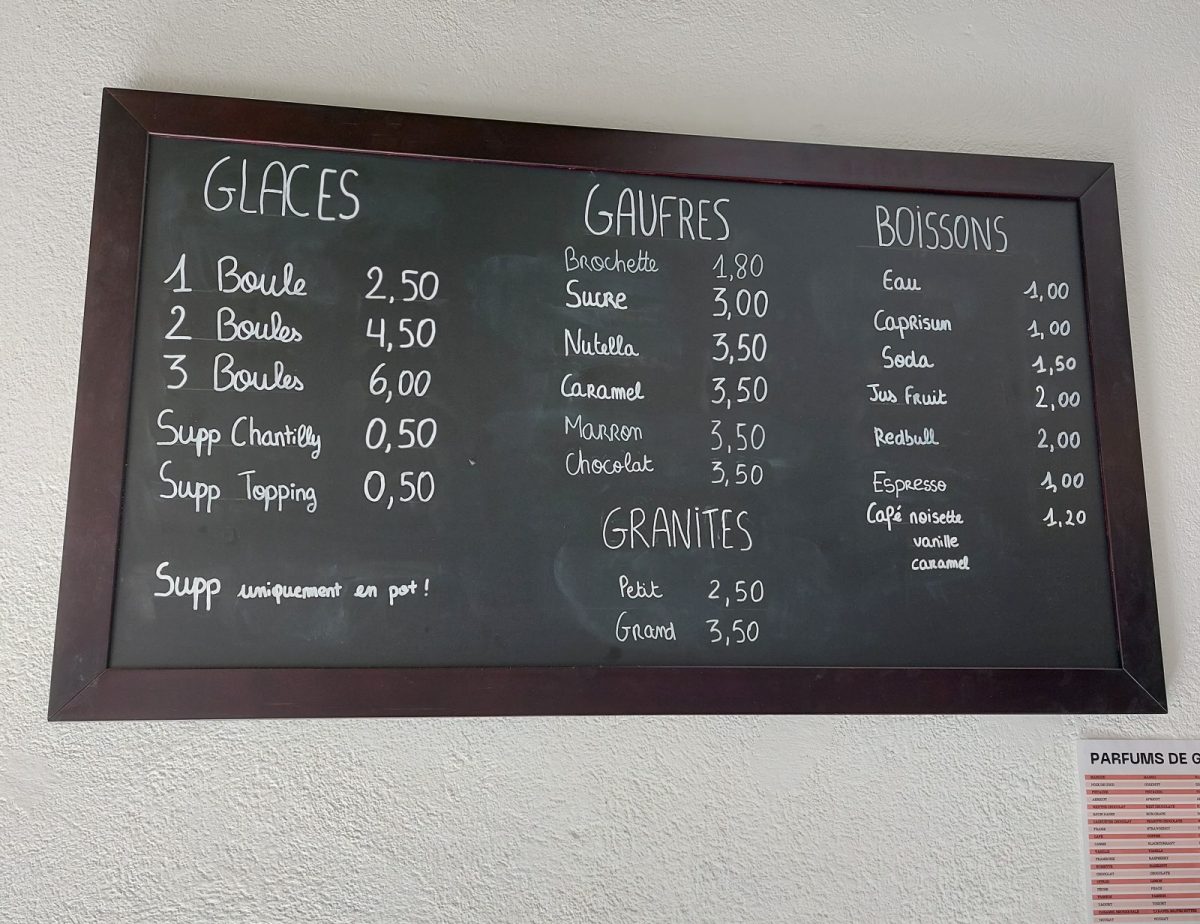 GLACES
1 Boule 2,50
2 Boules 4,50
3 Boules 6,00
Supp Chantilly 0,50
Supp Topping 0,50
Supp uniquement en pot !
GAUFRES
Brochette 1,80
Sucre 3,00
Nutella 3,50
Caramel 3,50
Marron 3,50
Chocolat 3,50
GRANITES
Petit 2,50
Grand 3,50
BOISSONS
Eau 1,00
Caprisun 1,00
Soda 1,50
Jus Fruit 2,00
Redbull 2,00
Espresso 1,00
Café noisette 1,20
vanille
caramel
PARFUMS DE G